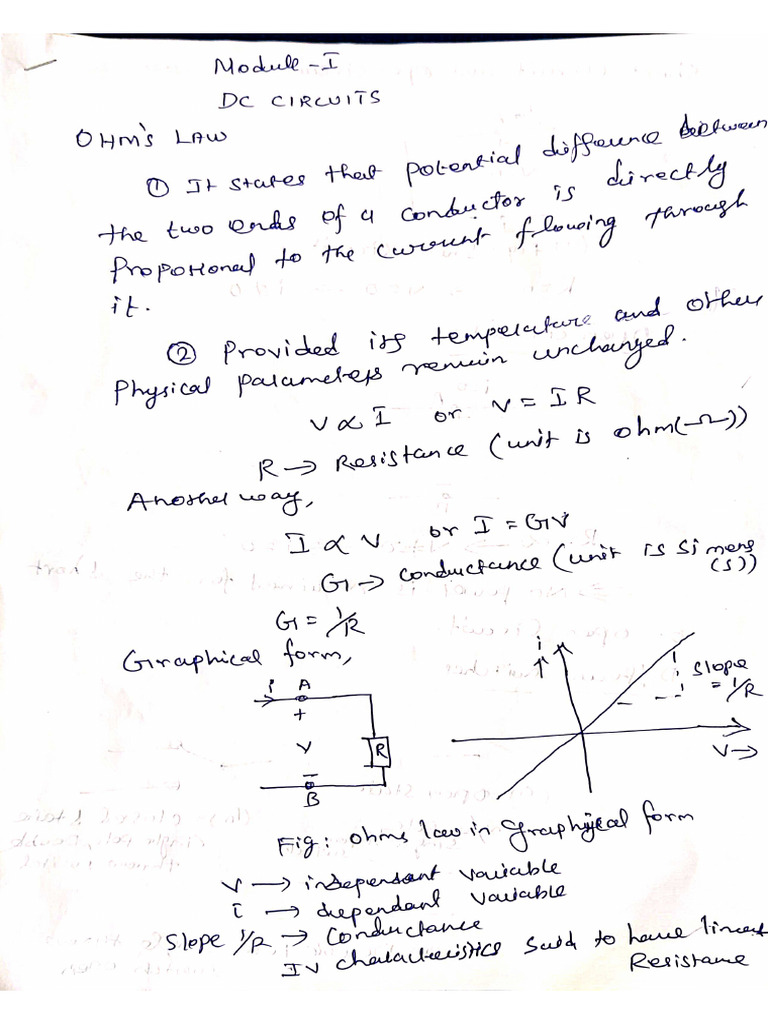 Module - I
DC CIRCUITS
OHM'S LAW
① It states that potential difference between
the two ends of a conductor is directly
Propotional to the current flowing through
it.
② Provided its temperature and other
Physical parameters remain unchanged.
V ∝ I or V = I R
R → Resistance (unit is ohm(Ω))
Another way,
I ∝ V or I = GV
G → conductance (unit is Simens
(S))
G = 1/R
Graphical form,
i A
+
V R
-
B
i
Slope
= 1/R
V →
Fig: ohms law in Graphical form
V → independant variable
i → dependant variable
Slope 1/R → Conductance
IV characteristics said to have linear
Resistance